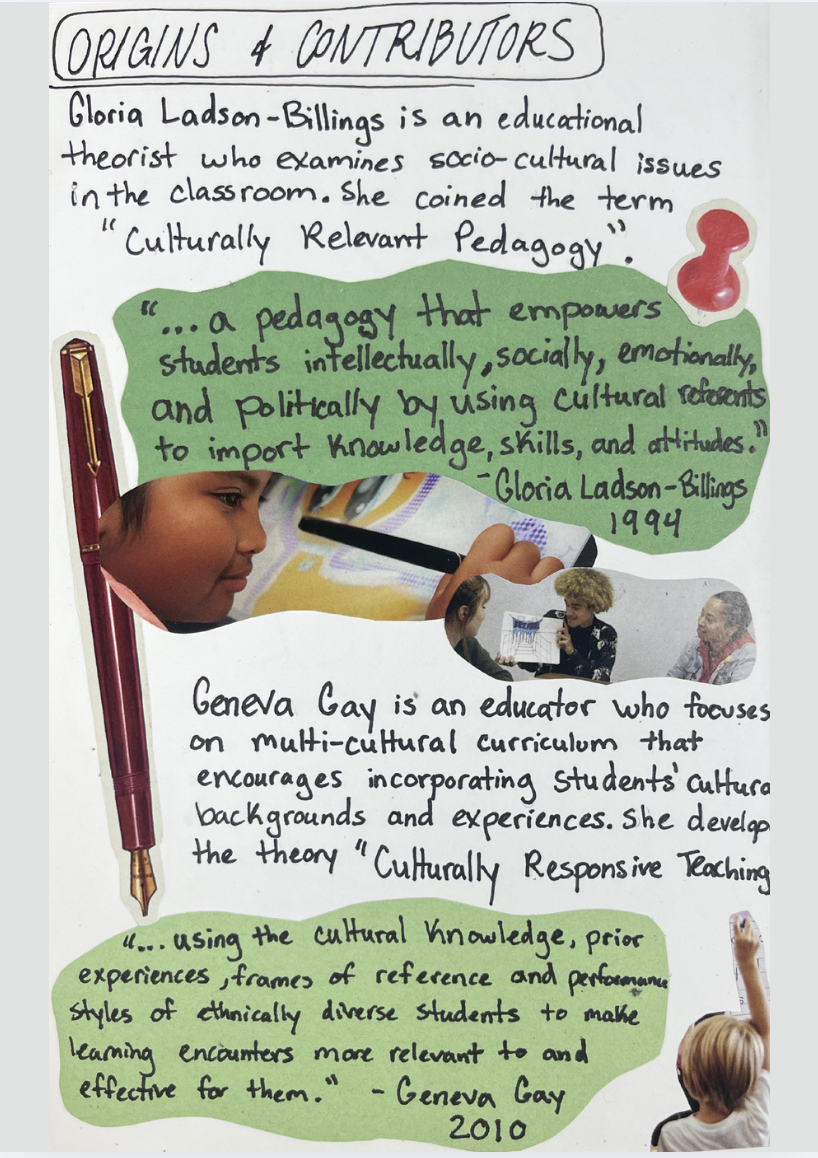 ORIGINS & CONTRIBUTORS
Gloria Ladson-Billings is an educational
theorist who examines socio-cultural issues
in the classroom. She coined the term
"Culturally Relevant Pedagogy".
"...a pedagogy that empowers
students intellectually, socially, emotionally,
and politically by using cultural referents
to import knowledge, skills, and attitudes."
-Gloria Ladson-Billings
1994
Geneva Gay is an educator who focuses
on multi-cultural curriculum that
encourages incorporating students' cultura
backgrounds and experiences. She develop
the theory "Culturally Responsive Teaching
"...using the cultural knowledge, prior
experiences, frames of reference and performance
styles of ethnically diverse students to make
learning encounters more relevant to and
effective for them." - Geneva Gay
2010